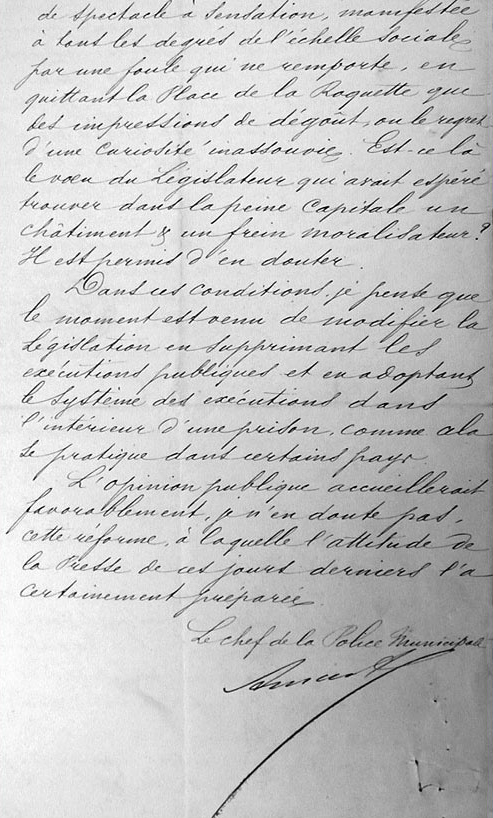 de spectacle à sensation, manifestée
à tous les degrés de l'échelle sociale
par une foule qui ne remporte, en
quittant la Place de la Roquette que
des impressions de dégoût, ou le regret
d'une curiosité inassouvie. Est-ce là
le vœu du Législateur qui avait espéré
trouver dans la peine Capitale un
châtiment & un frein moralisateur?
Il est permis d'en douter.
Dans ces conditions, je pense que
le moment est venu de modifier la
Législation en supprimant les
exécutions publiques et en adoptant
le système des exécutions dans
l'intérieur d'une prison, comme cela
se pratique dans certains pays.
L'opinion publique accueillerait
favorablement, je n'en doute pas,
cette réforme, à laquelle l'attitude de
la Presse de ces jours derniers l'a
certainement préparée.
Le chef de la Police Municipale